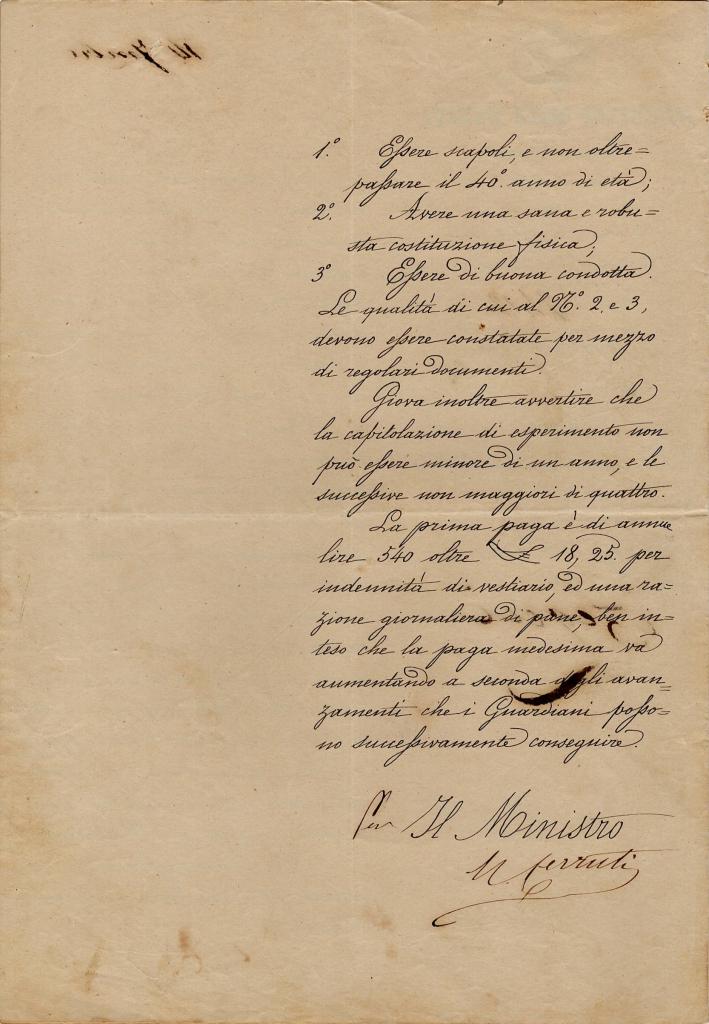 1.º Essere scapoli, e non oltre=
passare il 40º anno di età;
2º. Avere una sana e robu=
sta costituzione fisica;
3º Essere di buona condotta.
Le qualità di cui al Nº. 2 e 3,
devono essere constatate per mezzo
di regolari documenti.
Giova inoltre avvertire che
la capitolazione di esperimento non
può essere minore di un anno, e le
successive non maggiori di quattro.
La prima paga è di annue
lire 540 oltre £ 18, 25. per
indennità di vestiario, ed una ra=
zione giornaliera di pane, ben in=
teso che la paga medesima va
aumentando a seconda degli avan=
zamenti che i Guardiani posso=
no successivamente conseguire.
Per Il Ministro